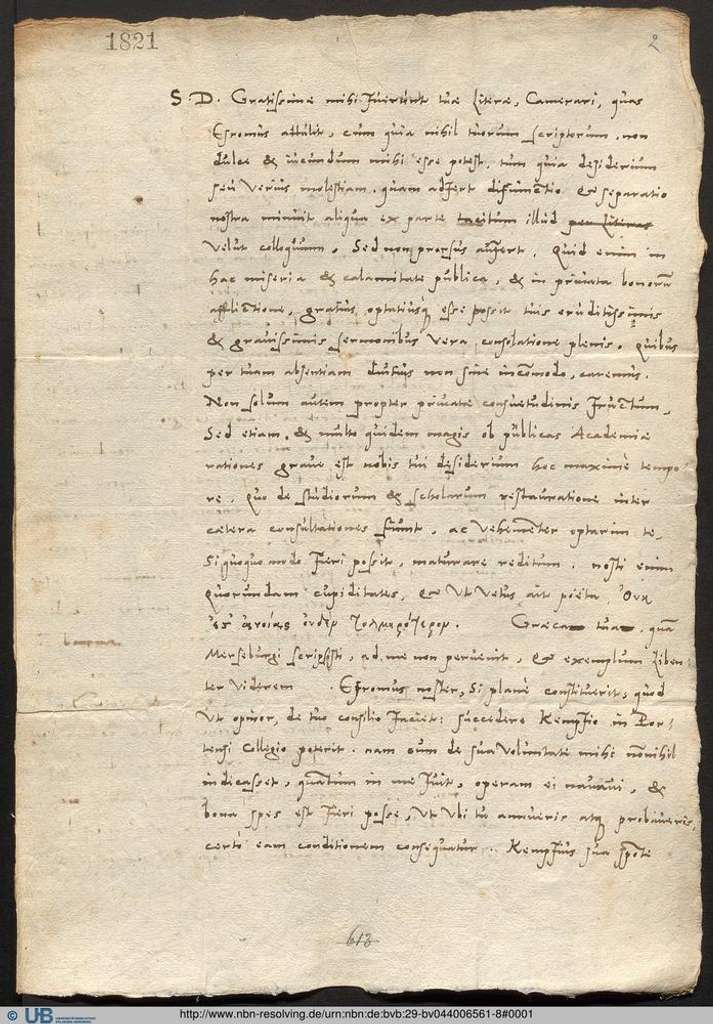 1821
2
S. D. Gratissimæ mihi fuerunt tuæ literæ, Camerari, quas
Esromus attulit, cum quia nihil tuorum scriptorum, non
dulce & iucundum mihi esse potest, tum quia desiderium
seu verius molestiam, quam adfert disiunctio & separatio
nostra minuit aliqua ex parte tacitum illud per literas
velut colloquium. Sed non prorsus aufert. Quid enim in
hac miseria & calamitate publica, & in priuata bonorū
afflictione, gratius optatiusq esse possit tuis eruditissimis
& grauissimis sermonibus vera consolatione plenis. Quibus
per tuam absentiam diutius non sine incōmodo, caremus.
Non solum autem propter priuatæ consuetudinis fructum,
Sed etiam, & multo quidem magis ob publicas Academiæ
rationes graue est nobis tui desiderium hoc maximè tempo
re. Quo de studiorum & scholarum restauratione inter
cætera consultationes fiunt, ac vehementer optarim te,
Si quoquo modo fieri possit, maturare reditum. nosti enim
Quorundam cupiditates, & vt vetus ait poëta, Οὐκ
ἐς ἀνοίας οὐδὲν τολμηρότερον. Græca tua, quæ
Merseburgi scripsisti, ad me non peruenit, & exemplum liben
ter viderem. Esromus noster, Si planè constituerit, quod
vt opinor, de tuo consilio faciet: succedere Kempfio in Por-
tensi Collegio poterit. nam cum de sua voluntate mihi nonnihil
indicasset, quantum in me fuit, operam ei nauaui, &
bona spes est fieri posse, vt vbi tu annueris atq probaueris,
certò eam conditionem consequatur. Kempfius sua spōte
613
UB
http://www.nbn-resolving.de/urn:nbn:de:bvb:29-bv044006561-8#0001